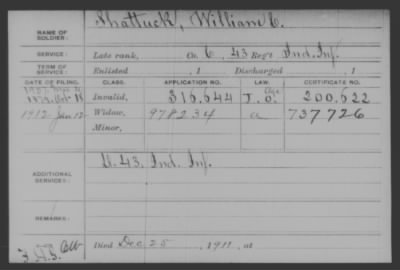 NAME OF SOLDIER: Shattuck, William C.
SERVICE: Late rank, Co. C, 43 Reg't Ind. Inf.
TERM OF SERVICE: Enlisted , 1 Discharged , 1
DATE OF FILING. CLASS. APPLICATION NO. LAW. CERTIFICATE NO.
1879 Oct Invalid, 316,644 200,622
1912 Jan 12 Widow, 978234 a 737726
Minor,
ADDITIONAL SERVICES: U. 43, Ind. Inf.
REMARKS:
Died Dec 25 , 1911, at